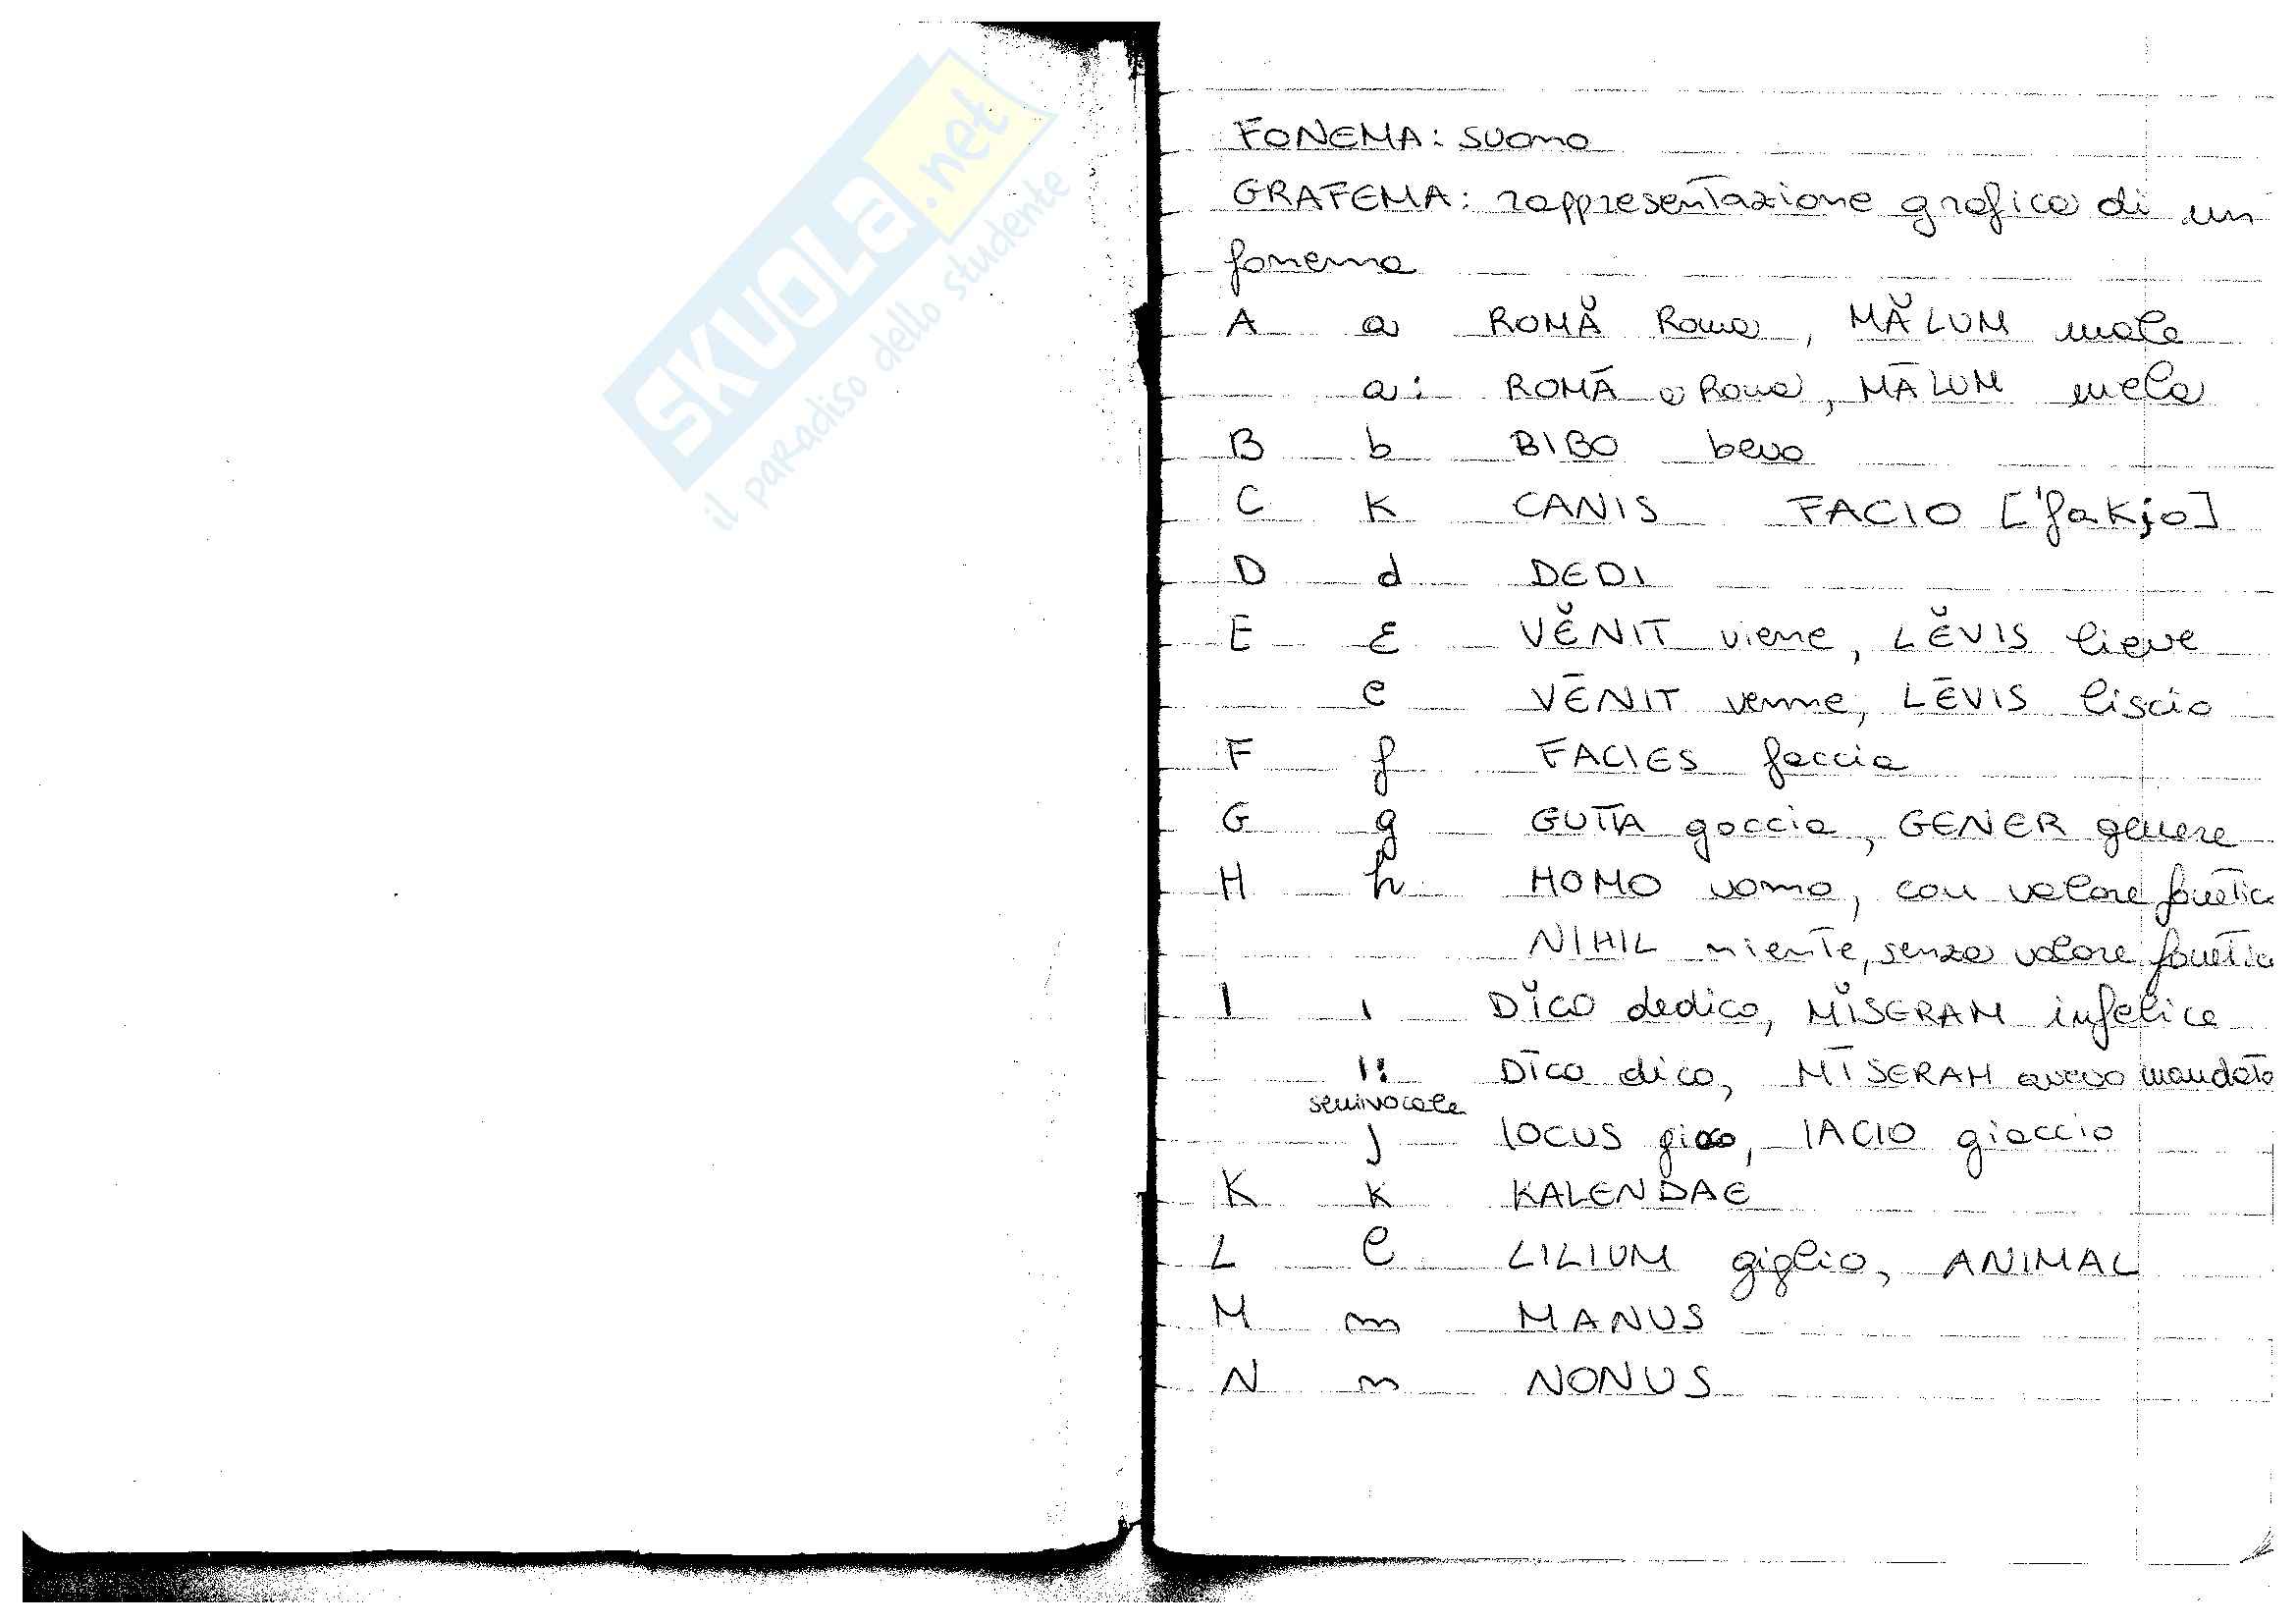 SKUOLA.net
il paradiso dello studente
FONEMA: suono
GRAFEMA: rappresentazione grafica di un
fonema
A a ROMĂ Roma, MĂLUM male
a: ROMĀ a Roma, MĀLUM mela
B b BIBO bevo
C k CANIS FACIO ['fakjo]
D d DEDI
E ɛ VĔNIT viene, LĔVIS lieve
e VĒNIT venne, LĒVIS liscio
F f FACIES faccia
G g GUTTA goccia, GENER genere
H h HOMO uomo, con valore fonetic
NIHIL niente, senza valore fonetic
I i DĬCO dedico, MĬSERAM infelice
i: DĪCO dico, MĪSERAM avevo mandato
semivocale
j IOCUS gioco, IACIO giaccio
K k KALENDAE
L l LILIUM giglio, ANIMAL
M m MANUS
N n NONUS